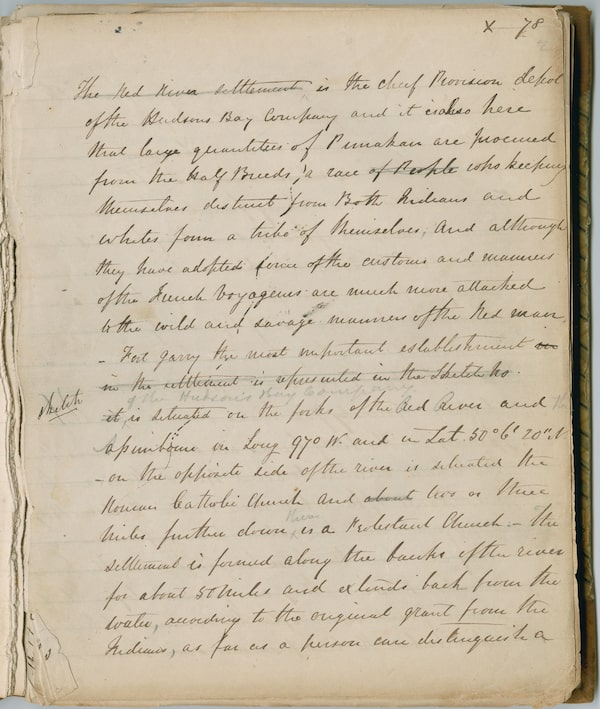 X 78
The Red River settlement is the cheif Provision Depot
of the Hudsons Bay Company and it is also here
that large quantities of Pimakan are procured
from the Half Breeds, a race of People who keeping
themselves distinct from Both Indians and
whites form a tribe of themselves, And although
they have adopted some of the customs and manners
of the French Voyageurs are much more attached
to the wild and savage manners of the Red man.
- Fort Garry the most important establishment
in the settlement is represented in the Sketch No.
of the Hudson's Bay Company
sketch
it, is situated on the forks of the Red River and
Assiniboine in Long 97° W. and in Lat. 50° 6' 20" N
- on the opposite side of the river is situated the
Roman Catholic Church and about two or three
miles further down, is a Protestant Church - The
settlement is formed along the banks of the river
for about 50 miles and extends back from the
water, according to the original grant from the
Indians, as far as a person can distinguish a